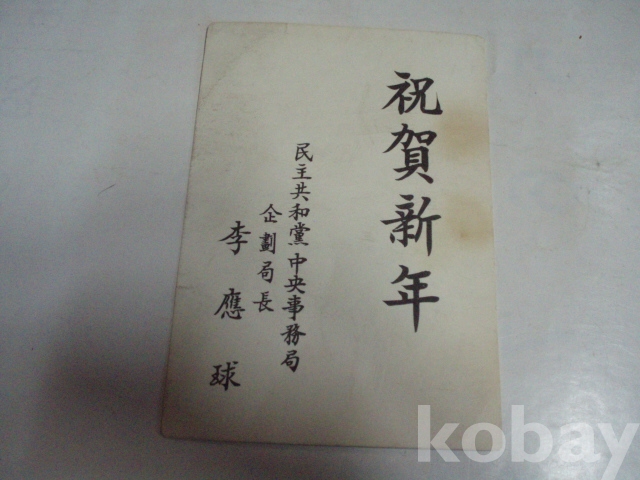 祝賀新年
民主共和黨中央事務局
企劃局長
李應球
kobay